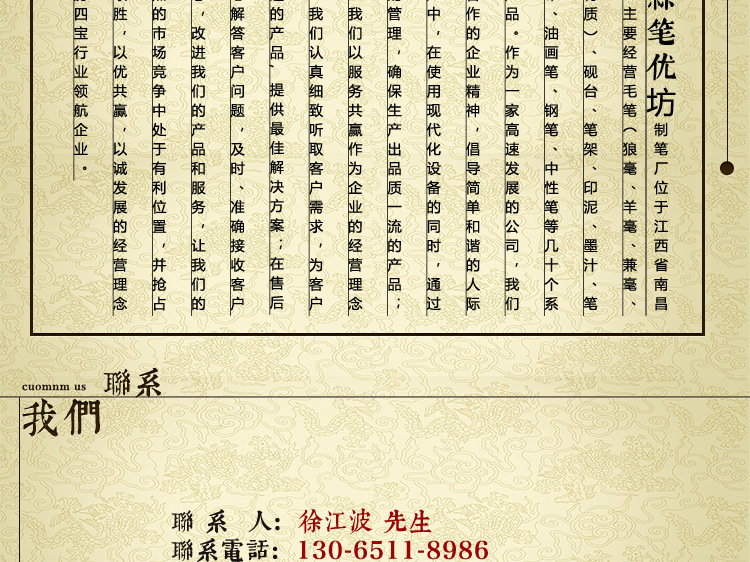 笔优坊制笔厂位于江西省南昌
主要经营毛笔（狼毫、羊毫、兼毫、
质）、砚台、笔架、印泥、墨汁、笔
、油画笔、钢笔、中性笔等几十个系
品。作为一家高速发展的公司，我们
作的企业精神，倡导简单和谐的人际
中，在使用现代化设备的同时，通过
管理，确保生产出品质一流的产品；
我们以服务共赢作为企业的经营理念
我们认真细致听取客户需求，为客户
的产品、提供最佳解决方案；在售后
解答客户问题，及时、准确接收客户
，改进我们的产品和服务，让我们的
的市场竞争中处于有利位置，并抢占
胜，以优共赢，以诚发展的经营理念
四宝行业领航企业。
cuomnm us 聯系
我們
聯系人：徐江波 先生
聯系電話：130-6511-8986